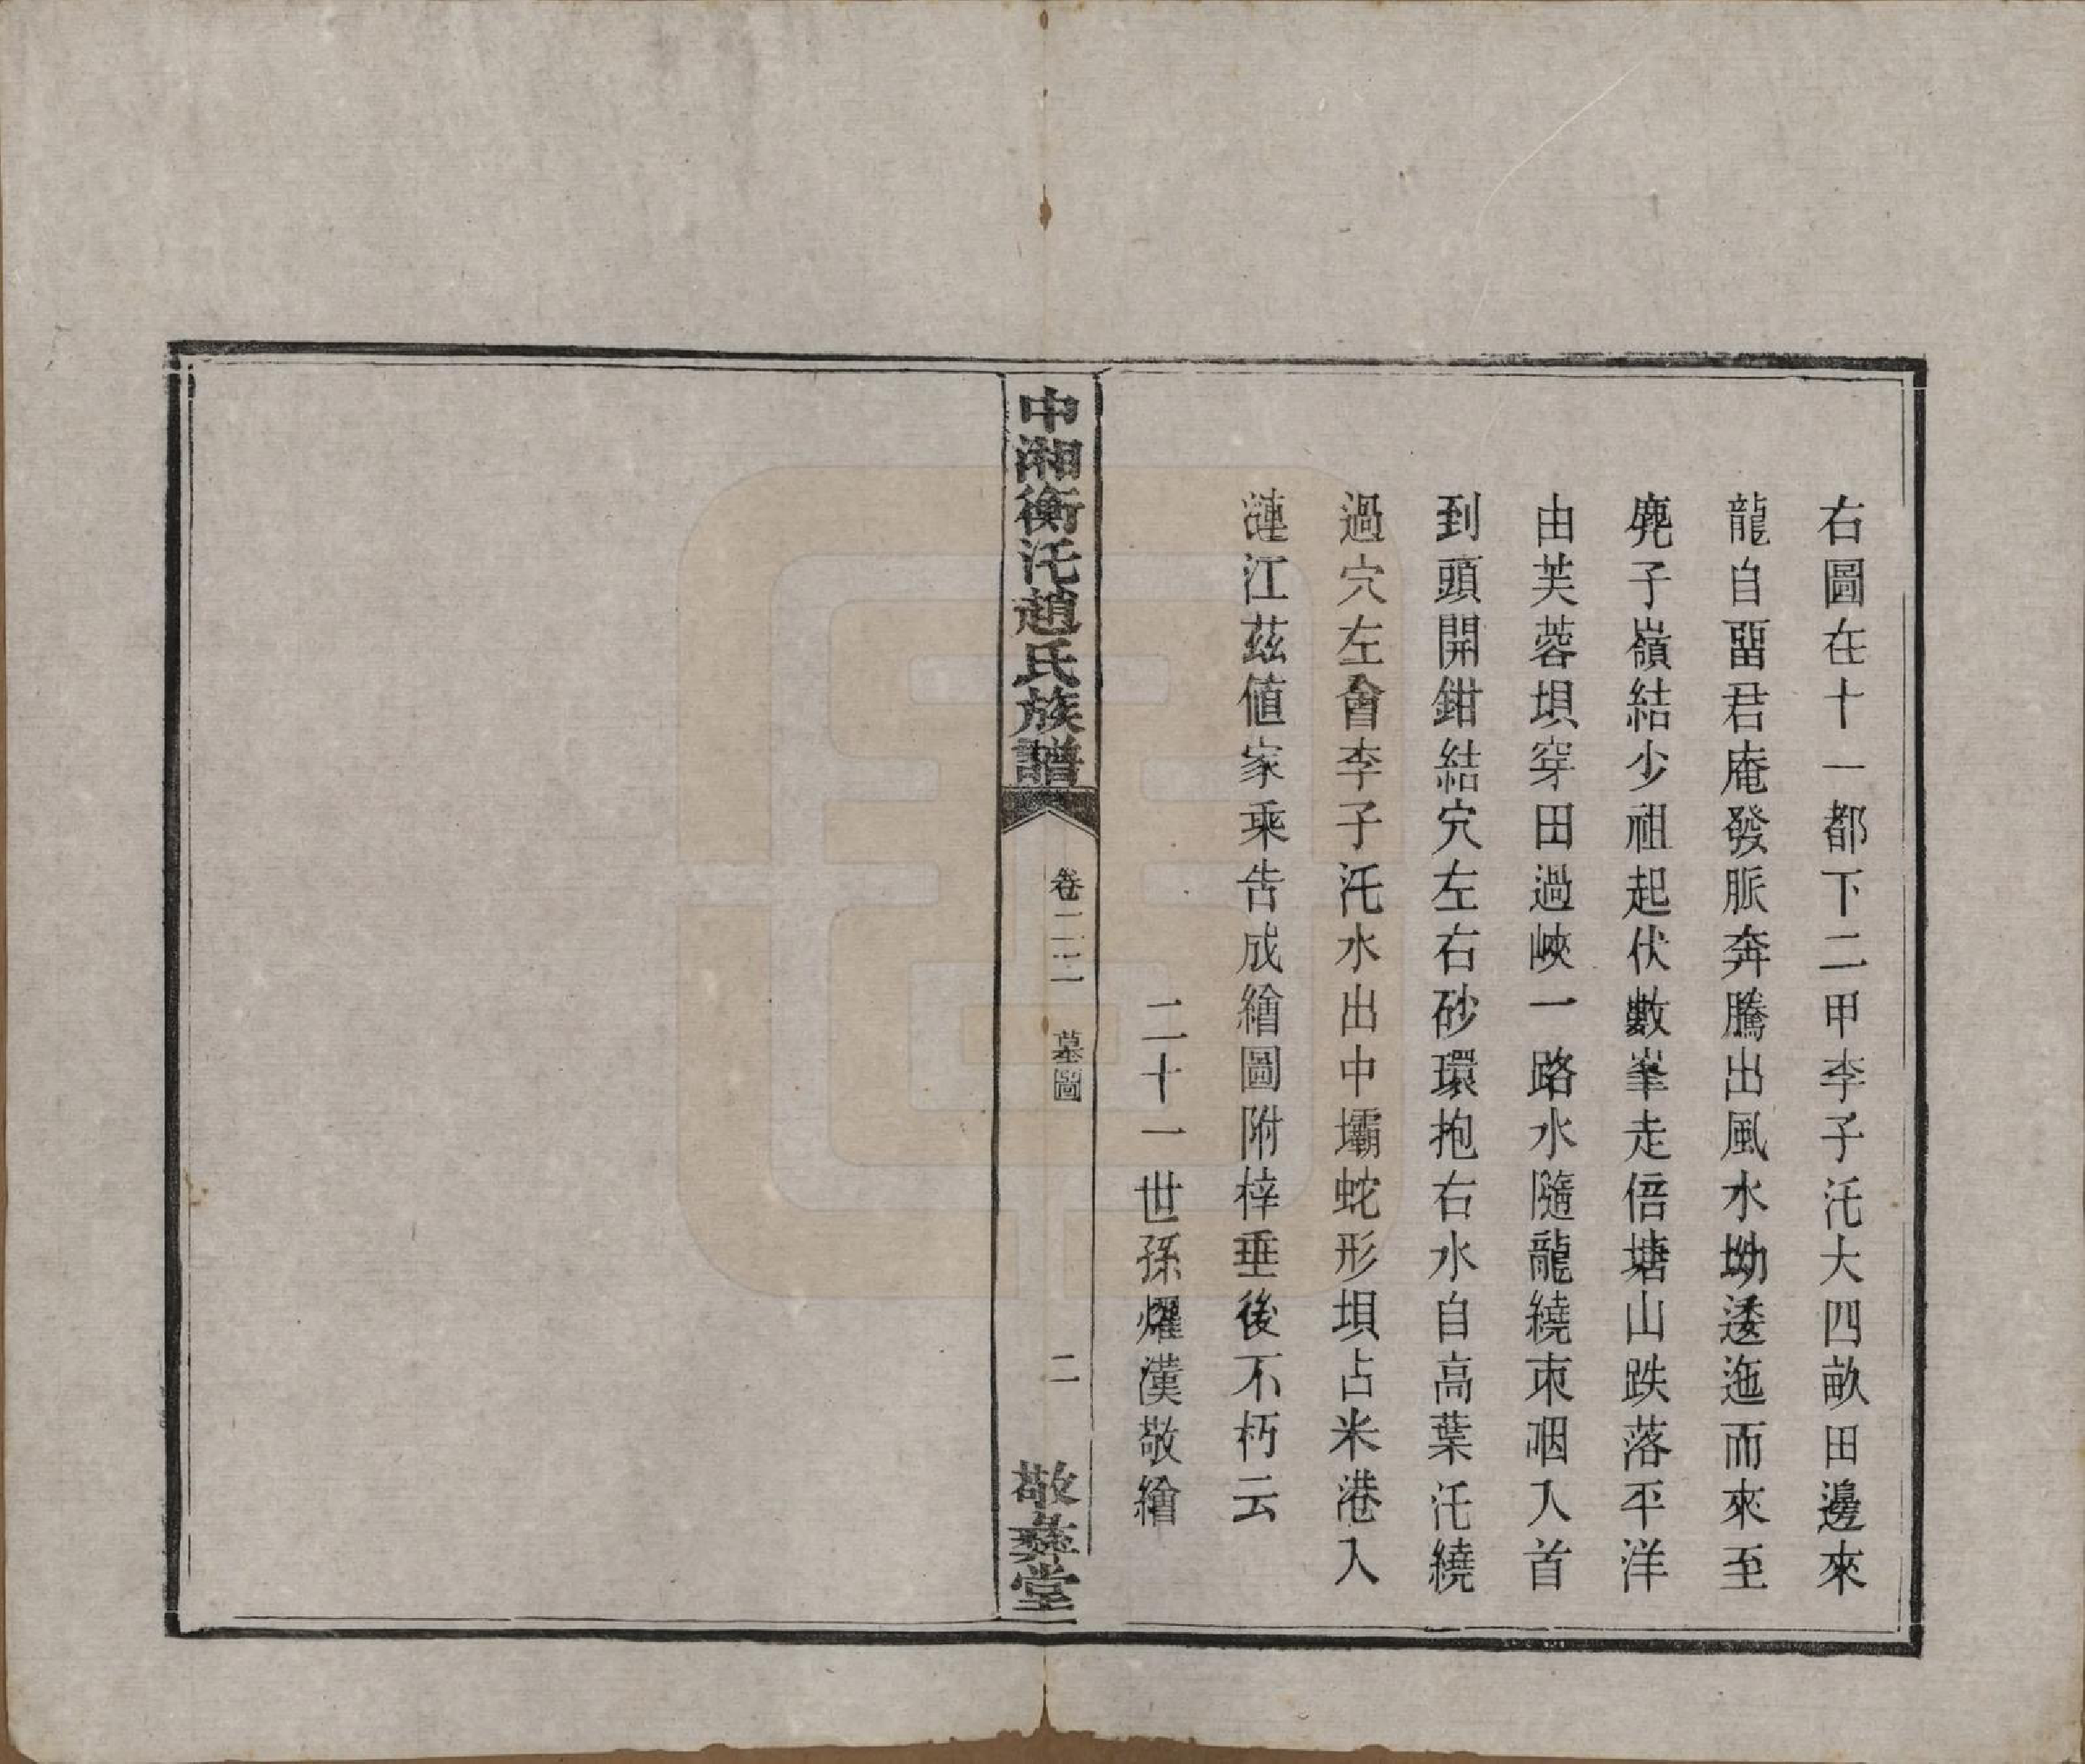 右圖在十一都下二甲李子汑大四畝田邊來
龍自畱君庵發脈奔騰出風水坳逶迤而來至
麂子嶺結少祖起伏數峯走倍塘山跌落平洋
由芙蓉垻穿田過峽一路水隨龍繞束咽入首
到頭開鉗結穴左右砂環抱右水自高葉汑繞
過穴左會李子汑水出中壩蛇形垻占米港入
漣江茲値家乘告成繪圖附梓垂後不朽云
二十一世孫燿漢敬繪
中湘衡汑趙氏族譜
墓圖
二
敬彝堂